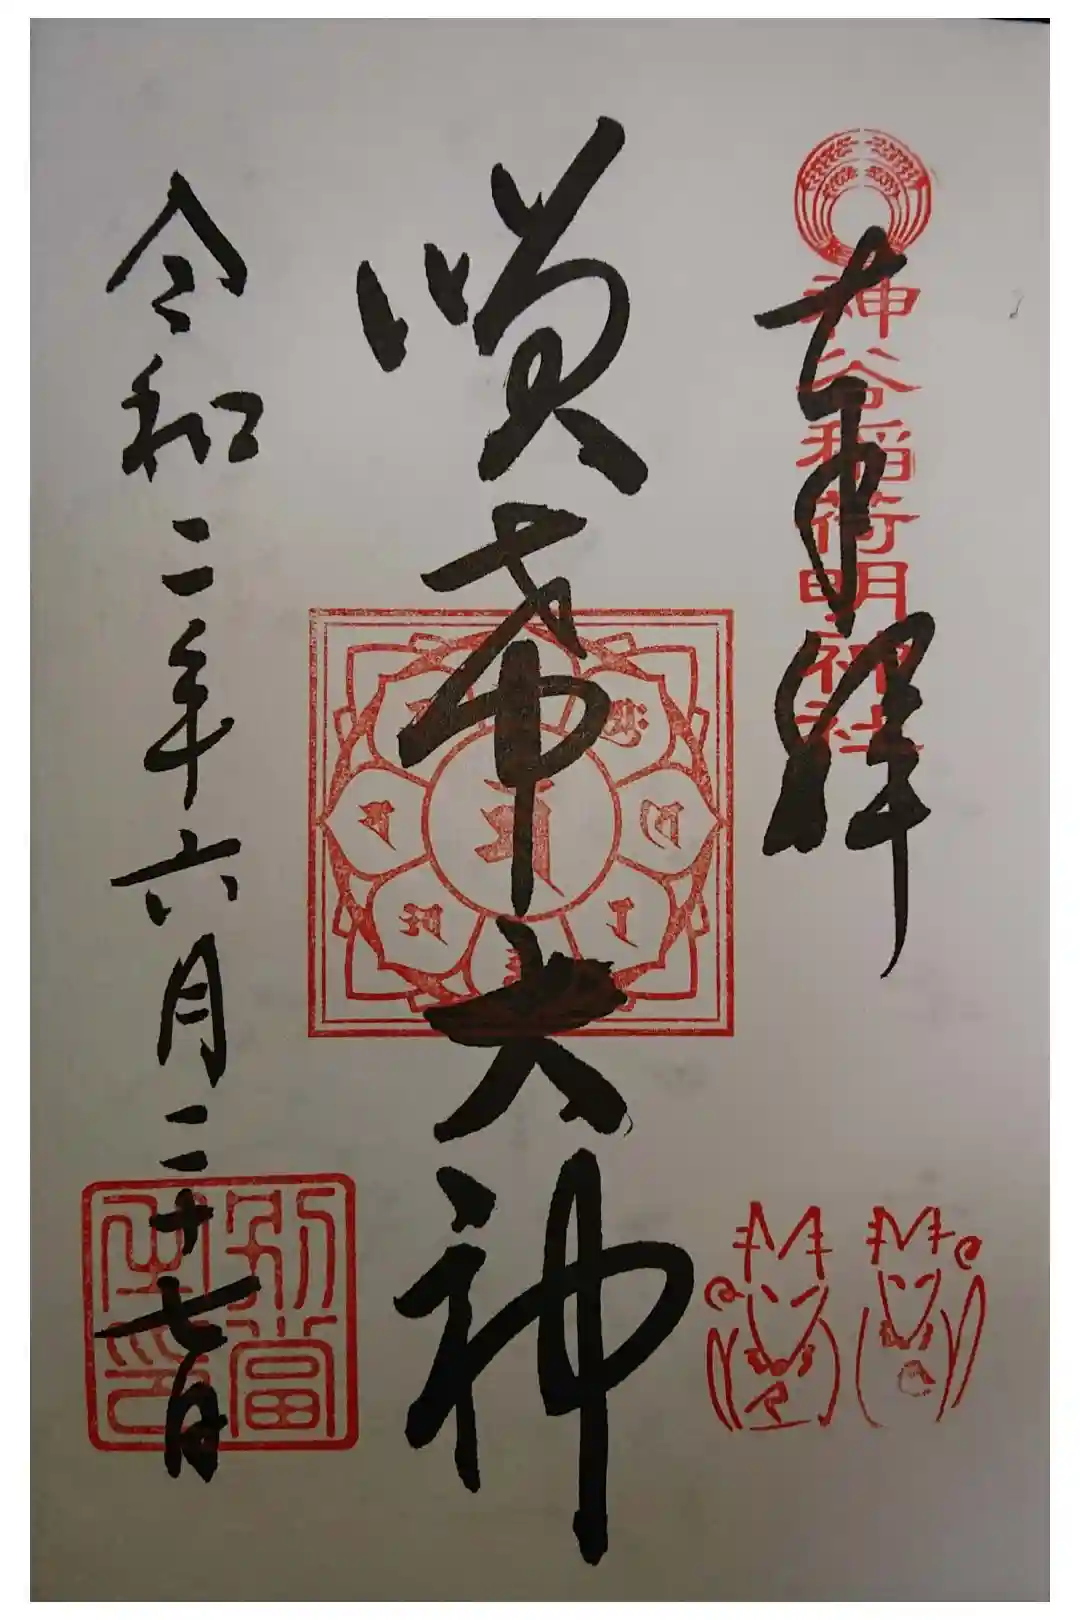 神谷稲荷明神社
奉拝
希大神
令和二年六月二十七日
別當